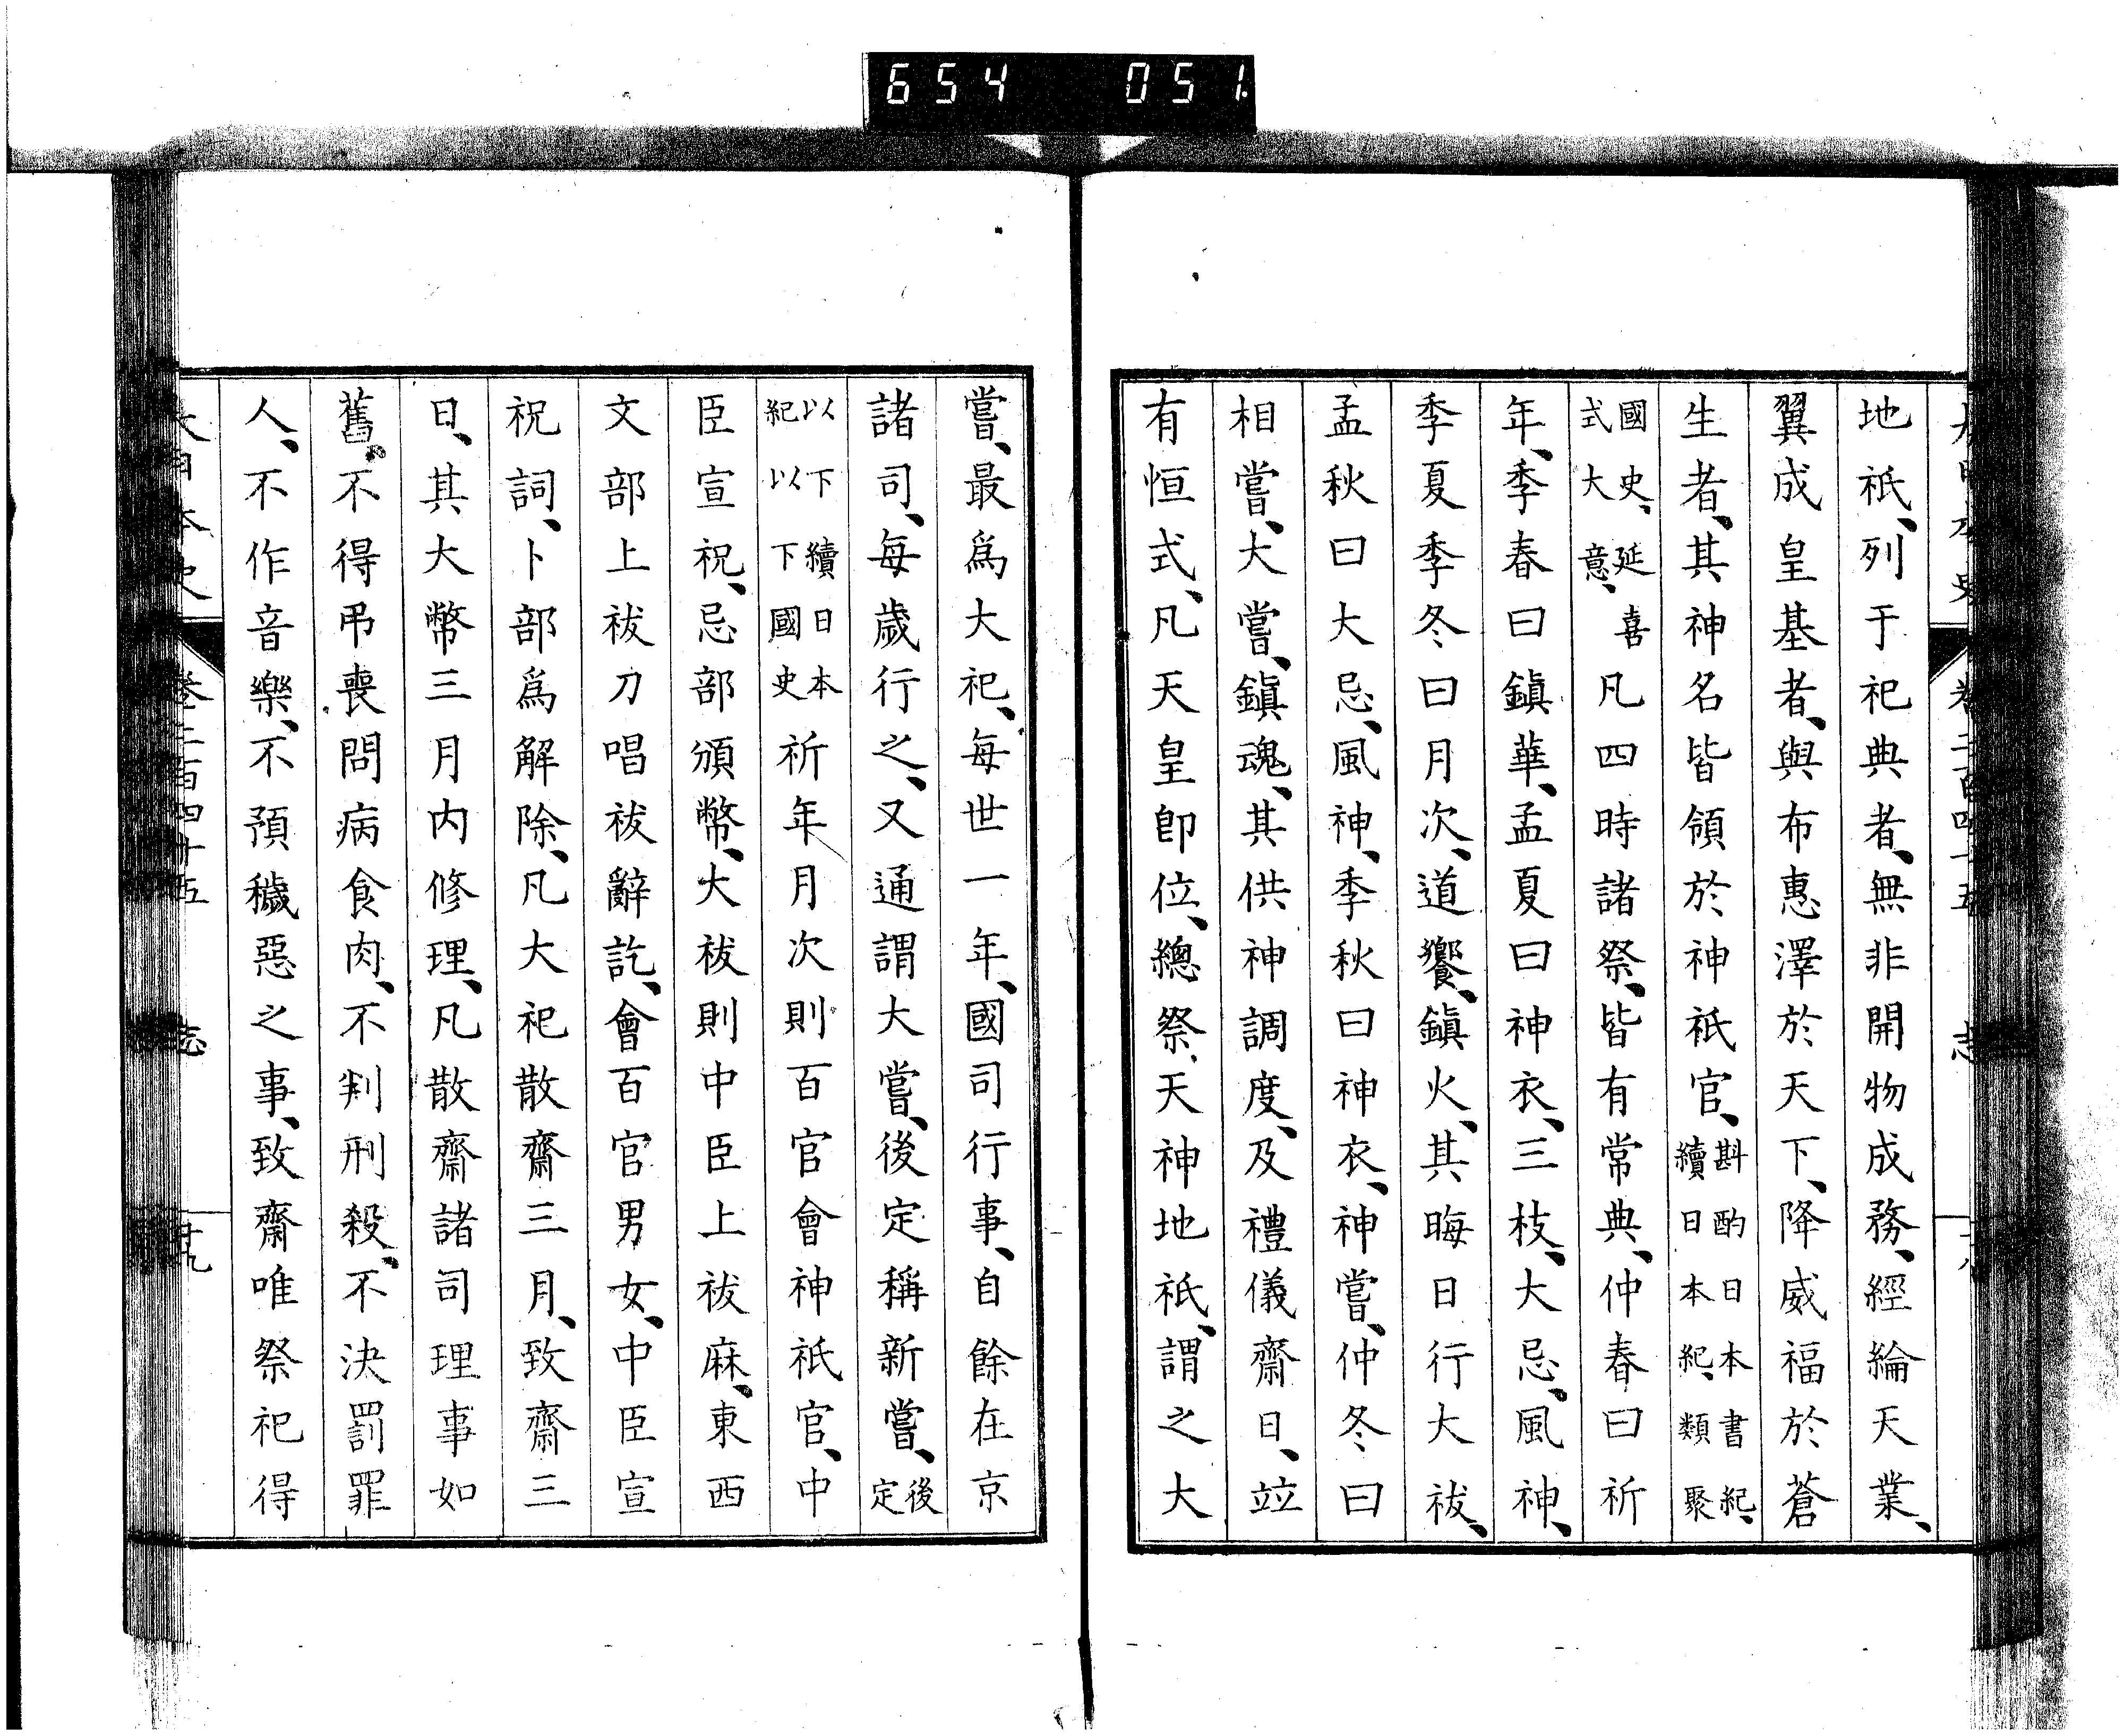 654 051
大日本史 卷二百四十五 志
地祇、列于祀典者、無非開物成務、經綸天業、
翼成皇基者、與布惠澤於天下、降威福於蒼
生者、其神名皆領於神祇官、斟酌日本書紀、續日本紀、類聚
國史、延喜式大意、凡四時諸祭、皆有常典、仲春曰祈
年、季春曰鎭華、孟夏曰神衣、三枝、大忌、風神、
季夏季冬曰月次、道饗、鎭火、其晦日行大祓、
孟秋曰大忌、風神、季秋曰神衣、神嘗、仲冬曰
相嘗、大嘗、鎭魂、其供神調度、及禮儀齋日、竝
有恒式、凡天皇卽位、總祭、天神地祇、謂之大
嘗、最爲大祀、每世一年、國司行事、自餘在京
諸司、每歲行之、又通謂大嘗、後定稱新嘗、後定
以下續日本紀以下國史祈年月次則百官會神祇官、中
臣宣祝、忌部頒幣、大祓則中臣上祓麻、東西
文部上祓刀唱祓辭訖、會百官男女、中臣宣
祝詞、卜部爲解除、凡大祀散齋三月、致齋三
日、其大幣三月內修理、凡散齋諸司理事如
舊、不得弔喪問病食肉、不判刑殺、不決罰罪
人、不作音樂、不預穢惡之事、致齋唯祭祀得
大日本史 卷二百四十五 志 廿九